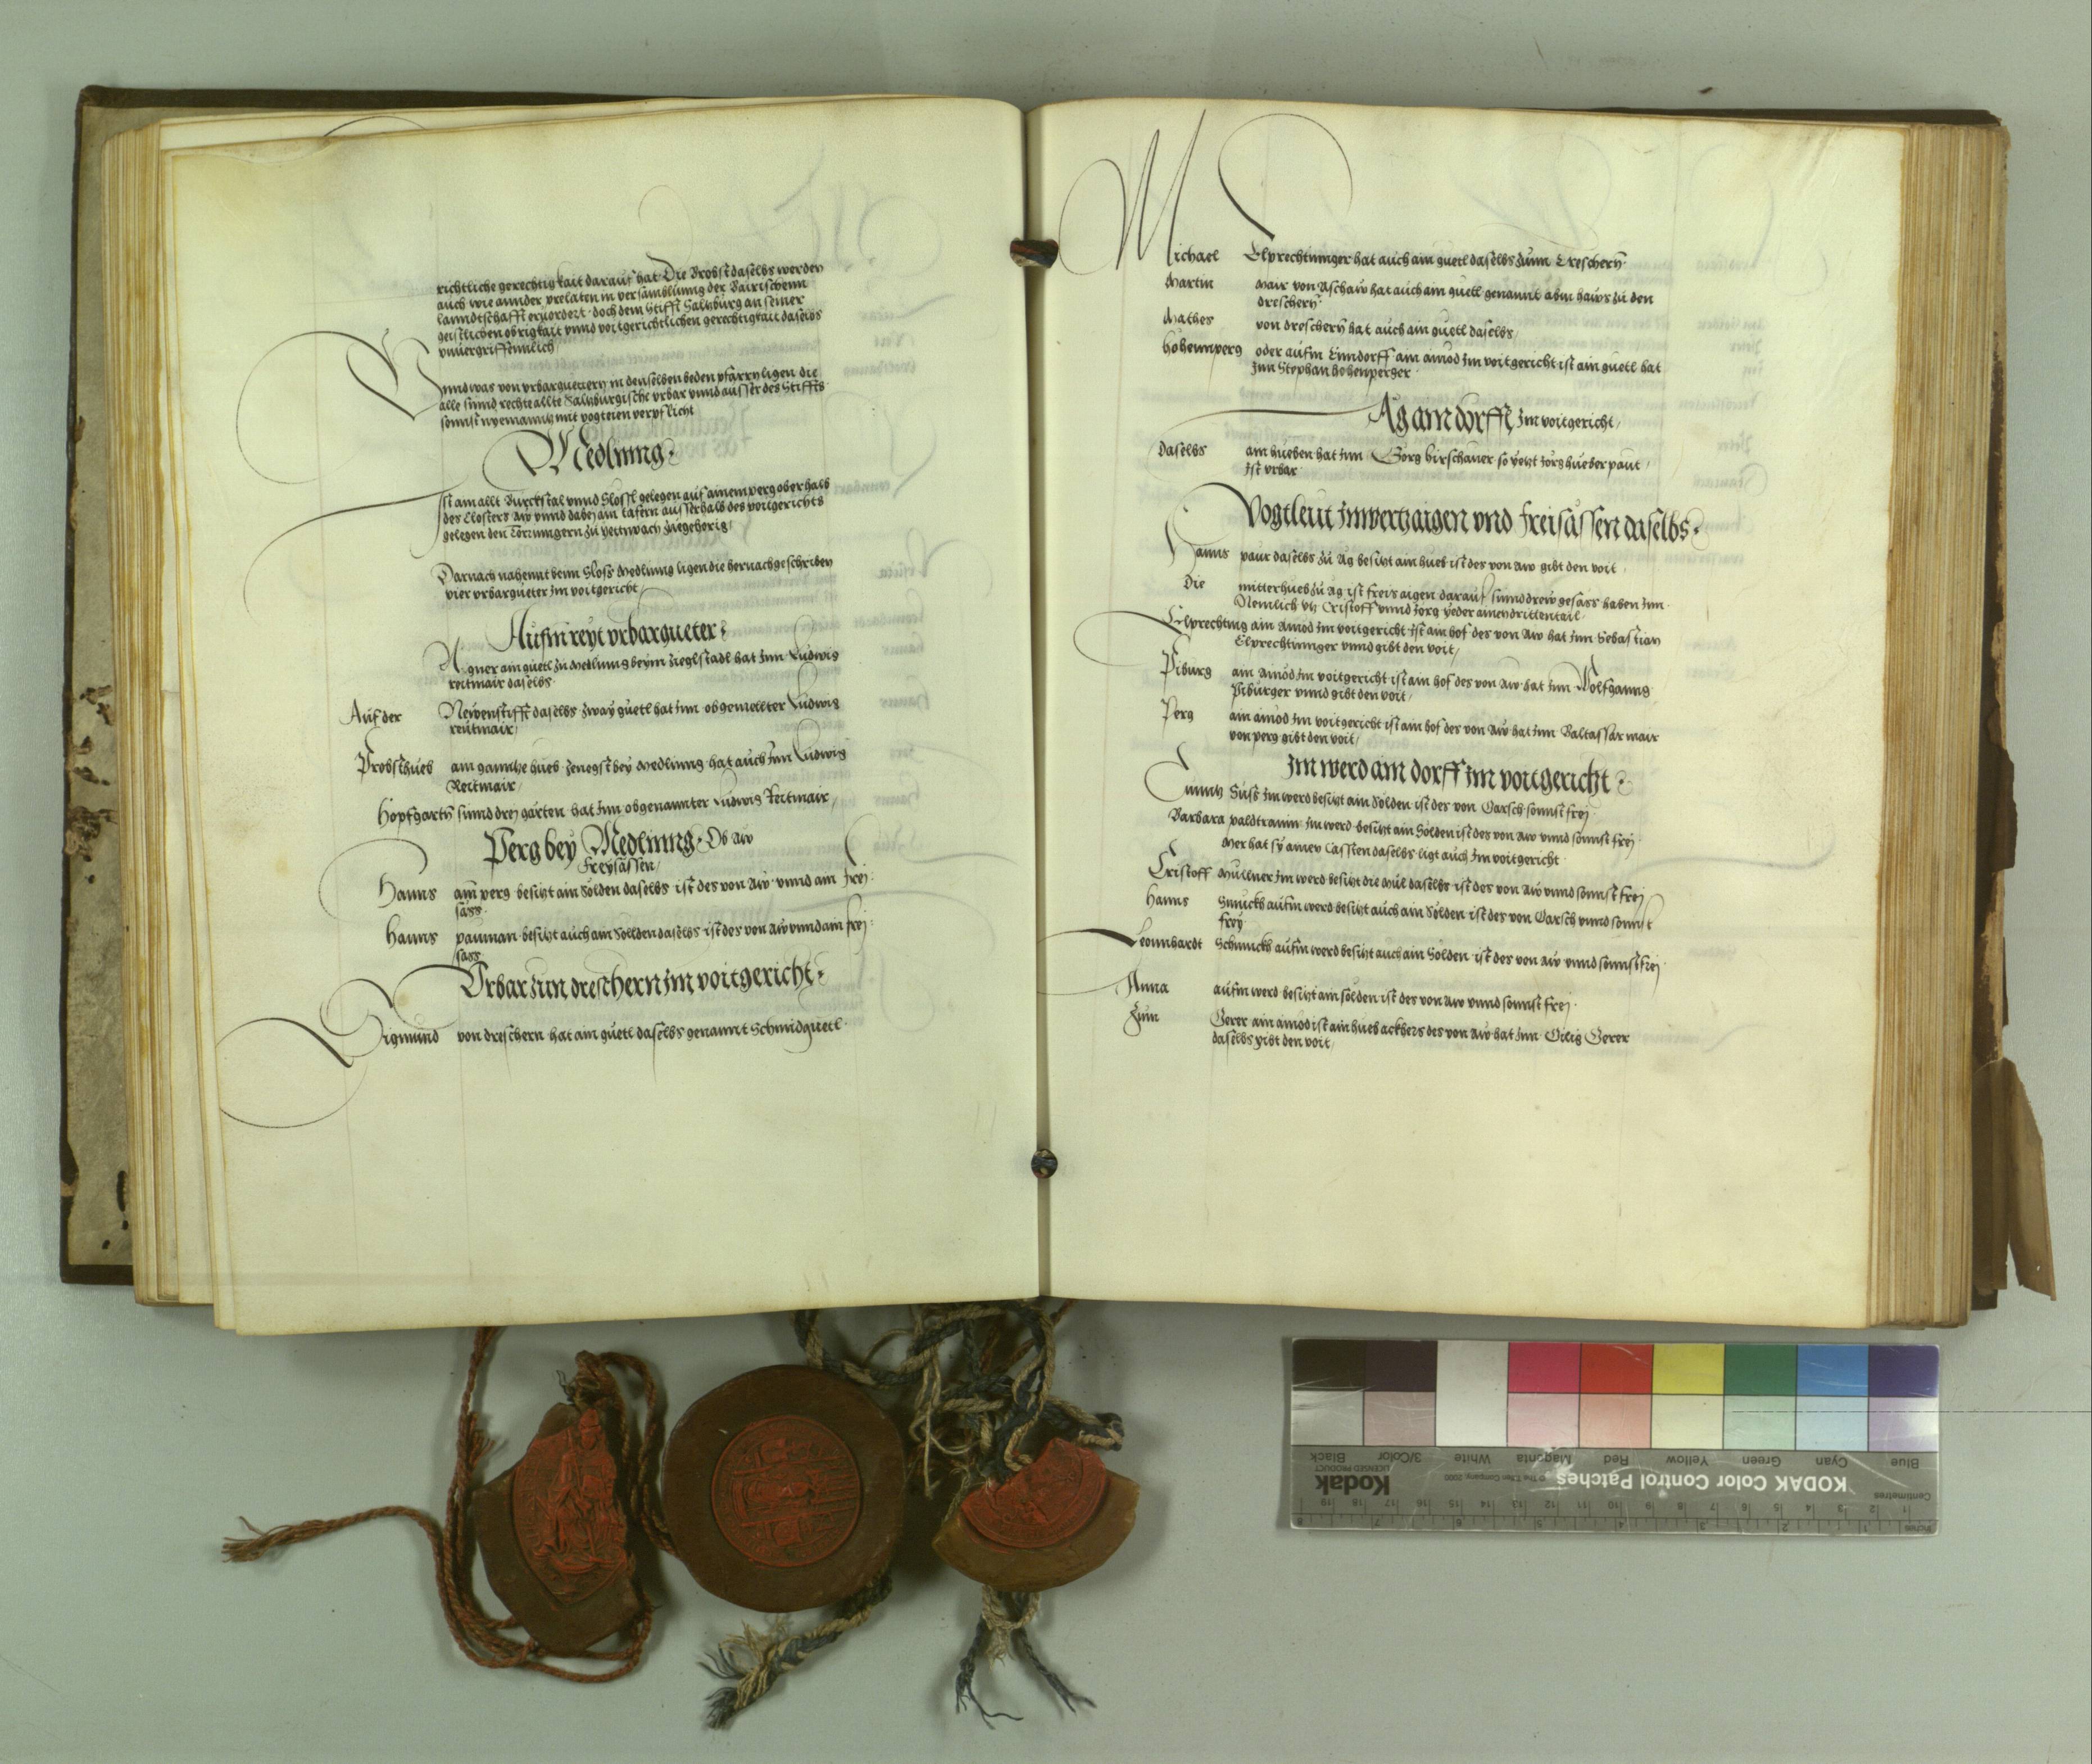 richtliche gerechtigkait darauf hat. Die Brobst daselbs werden
auch wie annder prelaten in versamblung der Bairischenn
lanndtschafft eruordert · doch dem Stifft Saltzburg an seiner
geistlichen obrigkait vnnd voitgerichtlichen gerechtigkait daselbs
vnuergriffennlich /
Vnnd was von vrbarguettern in denselben beden pfarrn ligen die
alle sinnd rechte allte Saltzburgische vrbar vnnd ausser des Stiffts
sonnst nyemanntz mit vogteien verpflicht
Medlinng
Ist ain allt Burckstal vnnd Slossl gelegen auf ainem perg oberhalb
des Closters Aw vnnd dabej ain tafern ausserhalb des voitgerichts
gelegen den Törringern zu yettnbach zuegehorig /
Darnach nahennt beim Sloss Medlinng ligen die hernachgeschriben
vier vrbargüeter im voitgericht /
Aufm reyt vrbargueter
Agner ain guetl zu Medlinng beym zieglstadl hat Inn Ludwig
reitmair daselbs
Auf der Newenstifft daselbs zway guetl hat Inn obgemellter Ludwig
reitmair /
Probsthueb ain ganntze hueb zenegst bey Medlinng hat auch Inn Ludwig
Reitmair /
Hopfgartn sinnd drej gärten hat Inn obgenannter Ludwig Reitmair /
Perg bey Medlinng · Ob Aw
Freysässen /
Hanns am perg besitzt ain Sölden daselbs ist des von Aw vnnd ain frej
säss
Hanns pauman besitzt auch ain Söllden daselbs ist des von Aw vnnd ain frej
säss
Vrbar zun dreschern Im voitgericht
Sigmund von dreschern hat ain guetl daselbs genannt Schmidguetl
Michael Elprechtinnger hat auch ain guetl daselbs zunn Dreschern
Martin Mair von Aschaw hat auch ain guetl genannt abm haws zu den
dreschern
Mathes von dreschern hat auch ain guetl daselbs /
Hohennperg oder aufm Linndorff ain ainöd Im voitgericht ist ain guetl hat
Inn Stephan hohenperger
Ag ain dorffl Im voitgericht /
Daselbs ain hueben hat Inn Görg hirschauer so yetzt Jörg hueber paut /
Ist vrbar
Vogtleut Inwertzaigen vnd freisässen daselbs
Hanns paur daselbs zu Ag besitzt ain hueb ist des von Aw gibt den voit
Die mitterhueb zu Ag ist freis aigen darauf sinnd drew gesäss haben Inn
Nemlich Utz Cristoff vnnd Jörg yeder ainen drittentail
Elprechting ain Ainöd Im voitgericht Ist ain hof des von Aw hat Inn Sebastian
Elprechtinnger vnnd gibt den voit /
Piburg ain Ainöd Im voitgericht ist ain hof des von Aw hat Inn Wolfganng
Piburger vnnd gibt den voit /
Perg ain ainöd Im voitgericht ist ain hof des von Aw hat Inn Baltassar mair
von perg gibt den voit /
Im werd ain dorff Im voitgericht
Cuntz Süss Im werd besitzt ain Sölden ist des von Garsch sonnst frej
Barbara paldtrauin Im werd besitzt ain Sölden ist des von Aw vnnd sonnst frej
Mer hat sy ainen Cassten daselbs ligt auch Im voitgericht
Cristoff Müllner Im werd besitzt die Mül daselbs ist des von Aw vnnd sonnst frej
Hanns Smuckh aufm werd besitzt auch ain Sölden ist des von Garsch vnnd sonnst
frey
Leonnhardt Schmuckh aufm werd besitzt auch ain Sölden ist des von Aw vnnd sonnst frej
Anna aufm werd besitzt ain sölden ist des von Aw vnnd sonnst frej
Zum Gerer ain ainöd ist ain hueb ackhers des von Aw hat Inn Gilig Gerer
daselbs gibt den voit /
Blue Cyan Green Yellow Red Magenta White 3/Color Black
KODAK Color Control Patches
© The Tiffen Company, 2000
Kodak
LICENSED PRODUCT
Centimetres
1 2 3 4 5 6 7 8 9 10 11 12 13 14 15 16 17 18 19
Inches 1 2 3 4 5 6 7 8